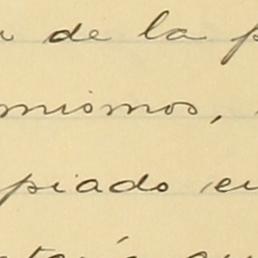 a de la p
mismos,
piado en